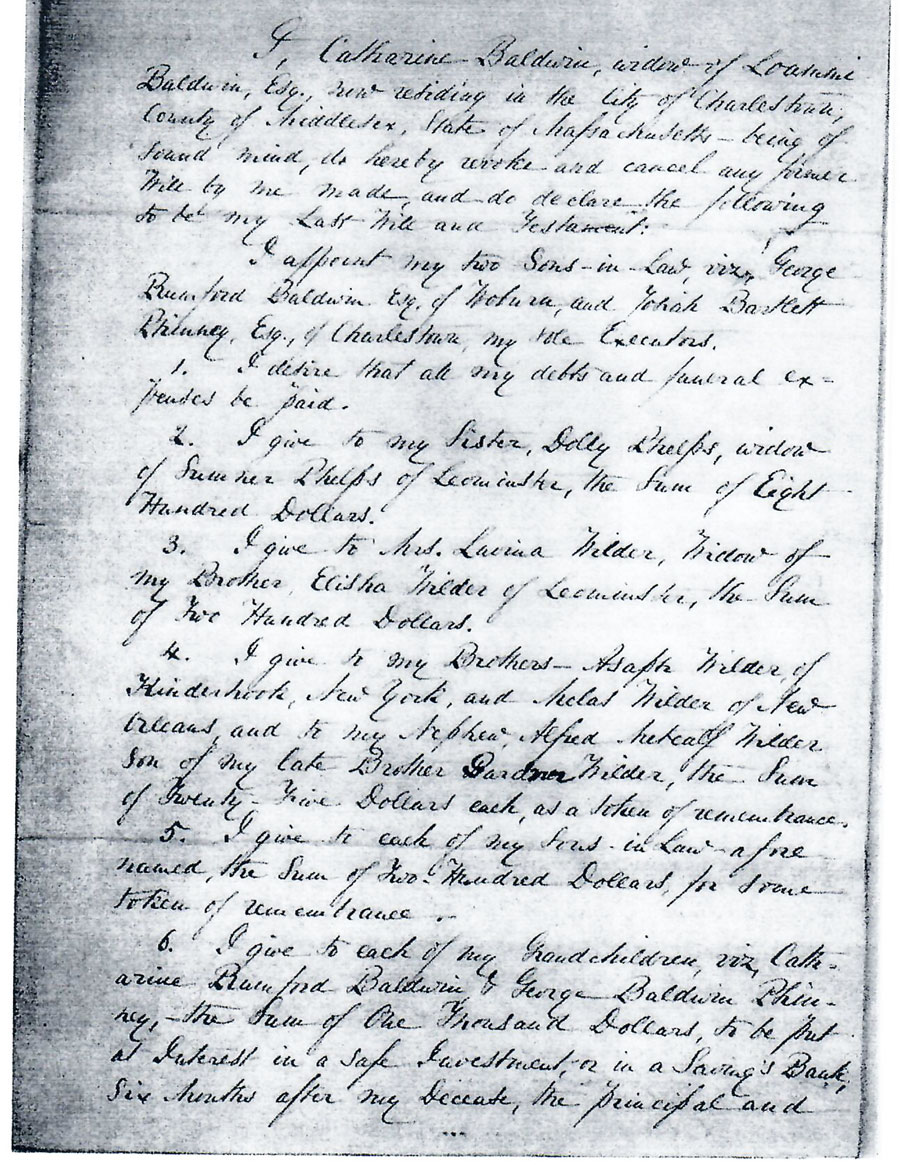 I, Catharine Baldwin, widow of Loammi
Baldwin, Esq., now residing in the City of Charlestown,
County of Middlesex, State of Massachusetts – being of
sound mind, do hereby revoke and cancel any former
Will by me made, and do declare the following
to be my Last Will and Testament:
I appoint my two Sons-in-Law, viz, George
Rumford Baldwin Esq. of Woburn, and Josiah Bartlett
Phinney, Esq., of Charlestown, my sole Executors.
1. I desire that all my debts and funeral ex-
penses be paid.
2. I give to my Sister, Dolly Phelps, widow
of Sumner Phelps of Leominster, the Sum of Eight
Hundred Dollars.
3. I give to Mrs. Lavina Wilder, Widow of
my Brother, Elisha Wilder of Leominster, the Sum
of Two Hundred Dollars.
4. I give to my Brothers – Asaph Wilder, of
Kinderhook, New York, and Melas Wilder of New
Orleans, and to my Nephew, Alfred Metcalf Wilder
Son of my late Brother Gardner Wilder, the Sum
of Twenty-Five Dollars each, as a token of remembrance.
5. I give to each of my Sons-in-Law afore
named, the Sum of Two Hundred Dollars, for some
token of remembrance.
6. I give to each of my Grandchildren, viz, Cath-
arine Rumford Baldwin & George Baldwin Phin-
ney, – the Sum of One Thousand Dollars, to be put
at Interest in a safe Investment, or in a Saving's Bank,
Six Months after my Decease, the principal and
...